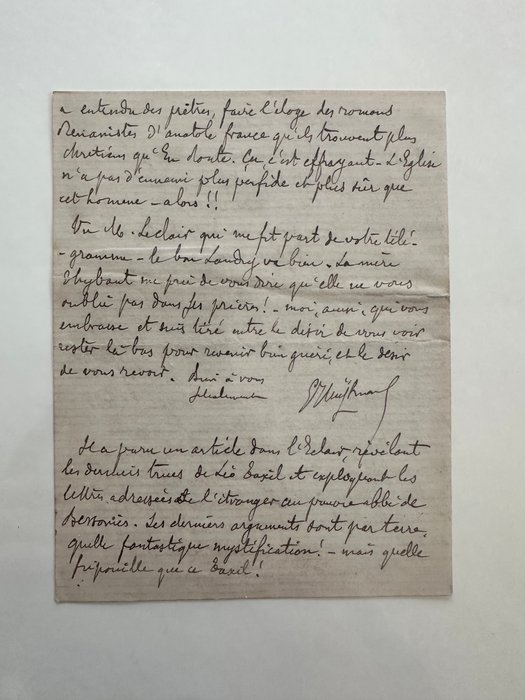 a entendu des prêtres, faire l'éloge des romans
Renanistes d'anatole france qu'ils trouvent plus
chrétiens qu'En Route. Ça, c'est effrayant – L'Eglise
n'a pas d'ennemi plus perfide et plus sûr que
cet homme – alors !!
Vu M. Leclair qui me fit part de votre télé-
-gramme – le bon Landry va bien. La mère
Thybaut me prie de vous dire qu'elle ne vous
oublie pas dans ses prières! – moi, aussi, qui vous
embrasse et suis tiré entre le désir de vous voir
rester là bas pour revenir bien guéri, et le désir
de vous revoir.
Bien à vous
GJHuysmans
Il a paru un article dans l'Eclair, révélant
les derniers trucs de Léo Taxil et expliquant les
lettres adressées de l'étranger au pauvre abbé de
Bessonies. Les derniers arguments sont par terre,
quelle fantastique mystification! – mais quelle
fripouille que ce Taxil!